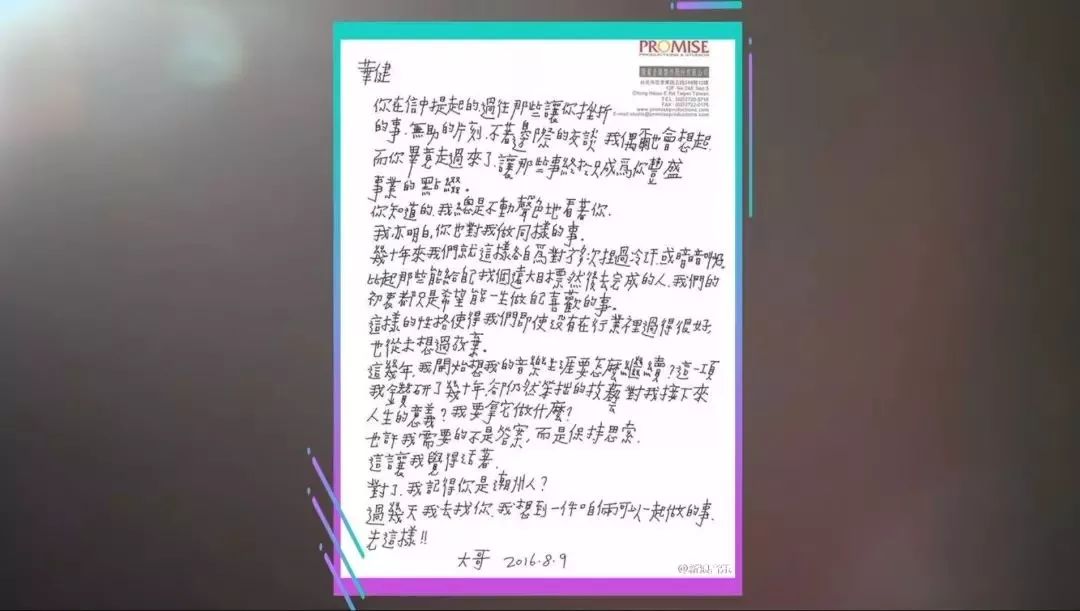 PROMISE
PRODUCTIONS & STUDIOS
華健
你在信中提起的,過往那些讓你挫折
的事.無助的片刻.不著邊際的交談.我偶爾也會想起.
而你畢竟走過來了.讓那些事終於只成為你豐盛
事業的點綴。
你知道的.我總是不動聲色地看著你.
我亦明白,你也對我做同樣的事。
幾十年來我們就這樣各自為對方多次捏過冷汗或暗暗叫好。
比起那些能給自己找個遠大目標然後去完成的人.我們的
初衷都只是希望能一生做自己喜歡的事。
這樣的性格使得我們即使沒有在行業裡過得很好,
也從未想過放棄。
這幾年,我開始想我的音樂生涯要怎麼繼續?這一項
我鑽研了幾十年,卻仍然笨拙的技藝對我接下來
人生的意義?我要拿它做什麼?
也許我需要的不是答案,而是保持思索.
這讓我覺得活著.
對了.我記得你是潮州人?
過幾天我去找你.我想到一件咱倆可以一起做的事.
先這樣!!
大哥 2016.8.9